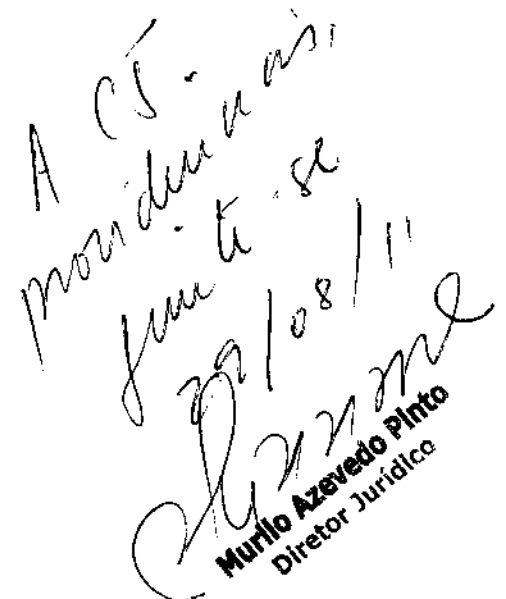 A CJ.
providenciais,
junte-se
29/08/11
Murilo Azevedo Pinto
Diretor Jurídico